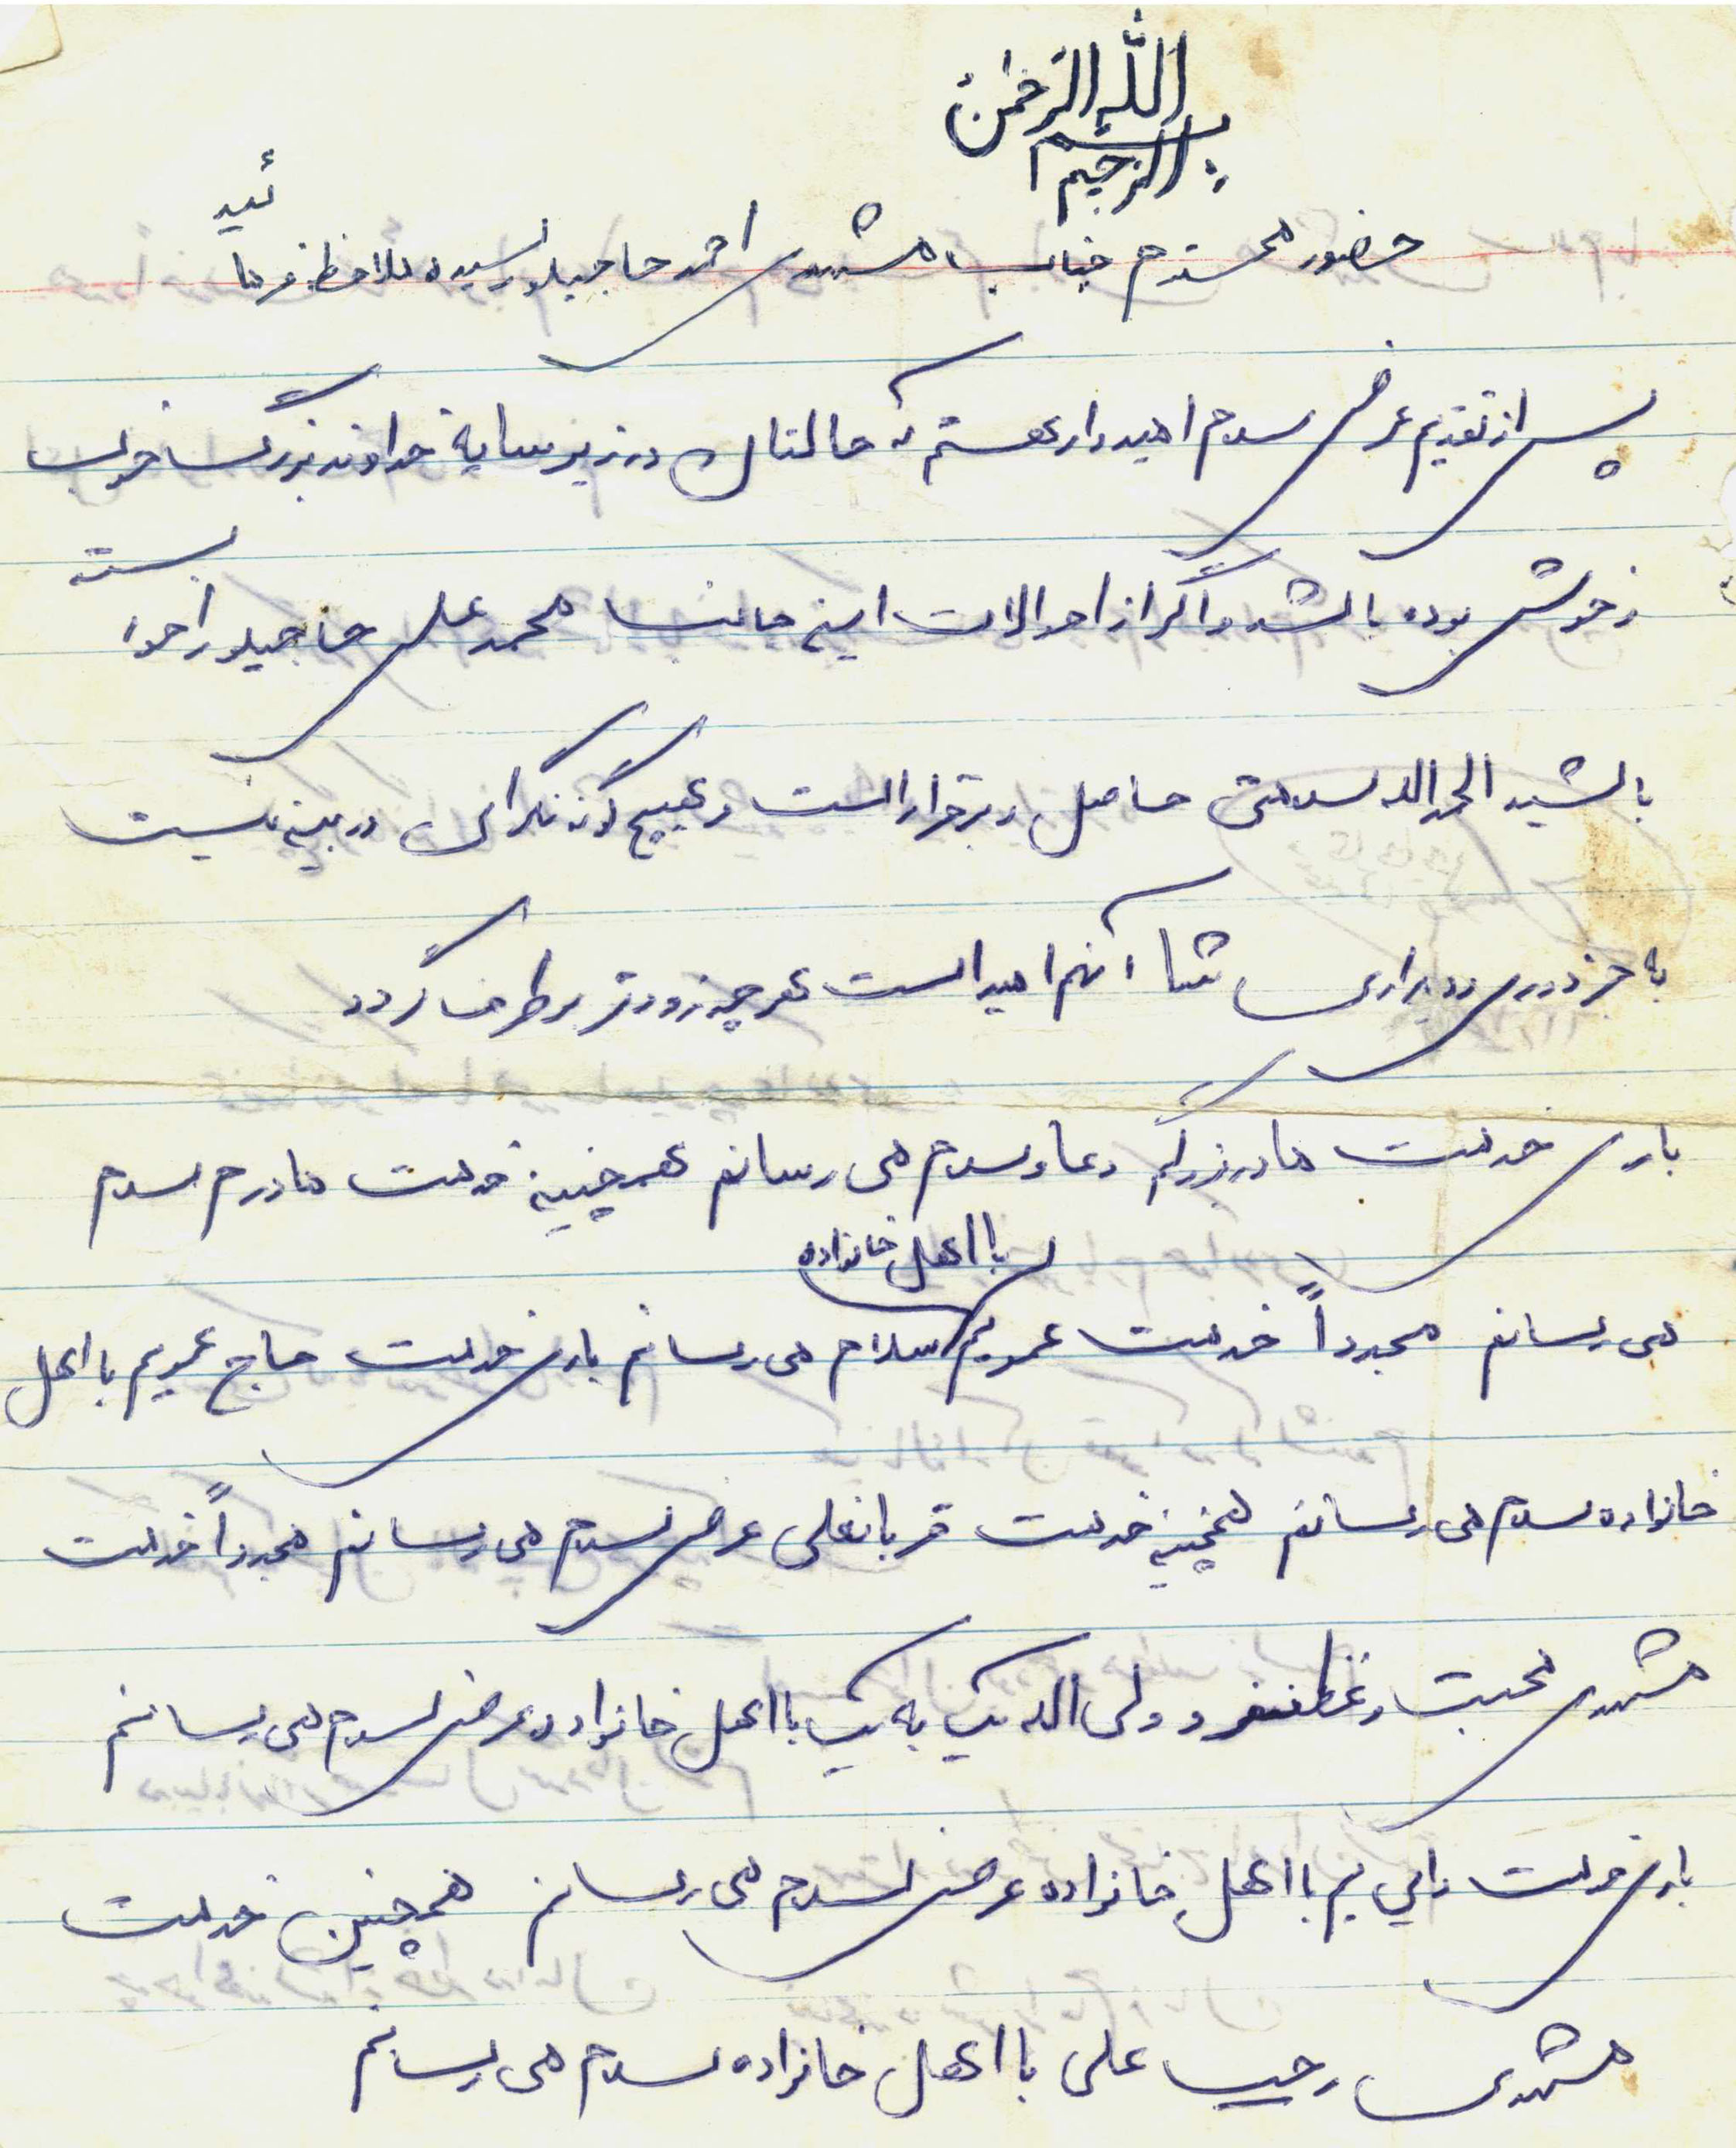 بسم الله الرحمن الرحیم
حضور محترم جناب مشهدی احمد حاجیلو رسیده ملاحظه فرمائید
پس از تقدیم عرض سلام امیدوار هستم که حالتان در زیر سایه خداوند بزرگ خوب
و خوش بوده باشد و اگر از احوالات اینجانب محمد علی حاجیلو را خواسته
باشید الحمدالله سلامتی حاصل و برقرار است و هیچ گونه نگرانی در بین نیست
به جز دوری و دیداری شما آنهم امید است هر چه زودتر برطرف گردد
باری خدمت مادربزرگم دعا و سلام می رسانم همچنین خدمت مادرم سلام
می رسانم مجدداً خدمت عمویم با اهل خانواده سلام می رسانم باری خدمت حاج عمویم با اهل
خانواده سلام می رسانم همچنین خدمت قربانعلی عرض سلام می رسانم مجدداً خدمت
مشهدی محبت و غظنفر و ولی الله یک به یک با اهل خانواده عرض سلام می رسانم
باری خدمت با اهل خانواده عرض سلام می رسانم همچنین خدمت
مشهدی رجب علی با اهل خانواده سلام می رسانم